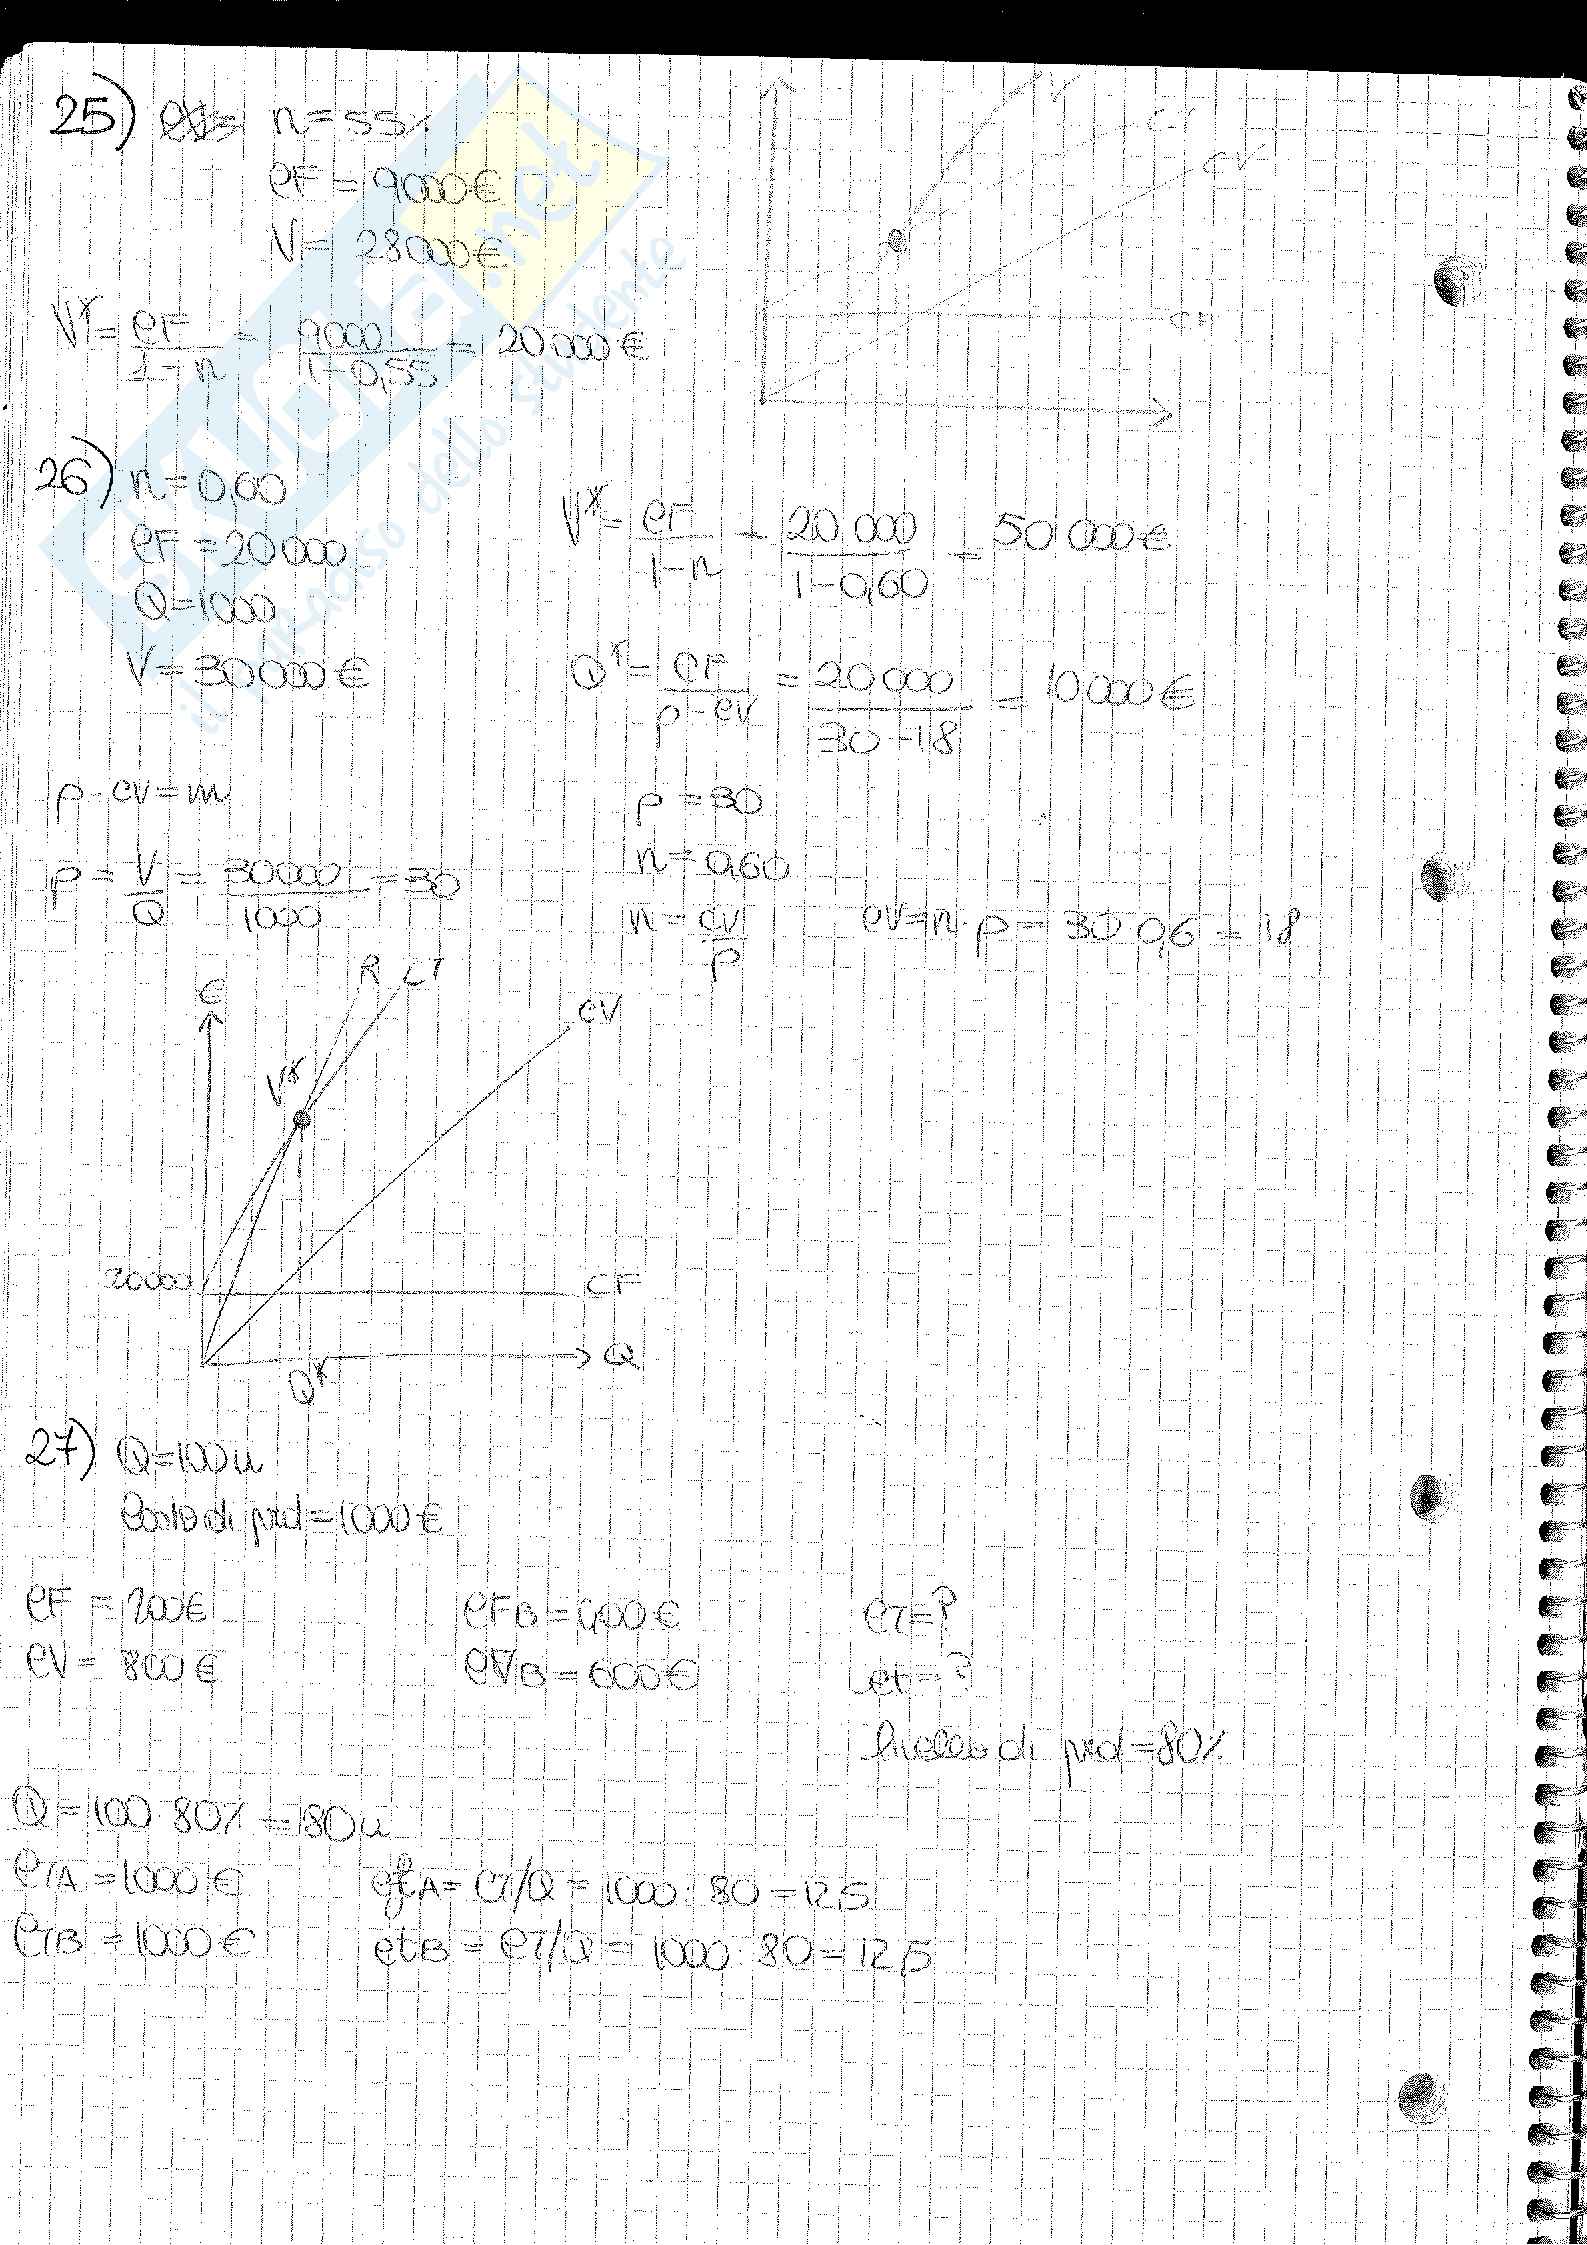 25) n = 55%
CF = 9000 €
V = 28000 €
V* = CF / 1-n = 9000 / 1-0,55 = 20000 €
V
CT
CV
CF
26) n = 0,60
CF = 20000
Q = 1000
V = 30000 €
V* = CF / 1-n = 20 000 / 1-0,60 = 50 000 €
Q* = CF / p-cv = 20000 / 30-18 = 10000 €
p - cv = m
p = V / Q = 30000 / 1000 = 30
p = 30
n = 0,60
n = cv / p cv = n · p = 30 0,6 = 18
€
R CT
CV
V*
20000
CF
Q
Q*
27) Q = 100 u
Costo di prod = 1000 €
CF = 200 € CFB = 400 € CT = ?
CV = 800 € CVB = 600 € ct = ?
livello di prod = 80%
Q = 100 · 80% = 80 u
CTA = 1000 € ctA = CT/Q = 1000 : 80 = 12,5
CTB = 1000 € ctB = CT/Q = 1000 : 80 = 12,5